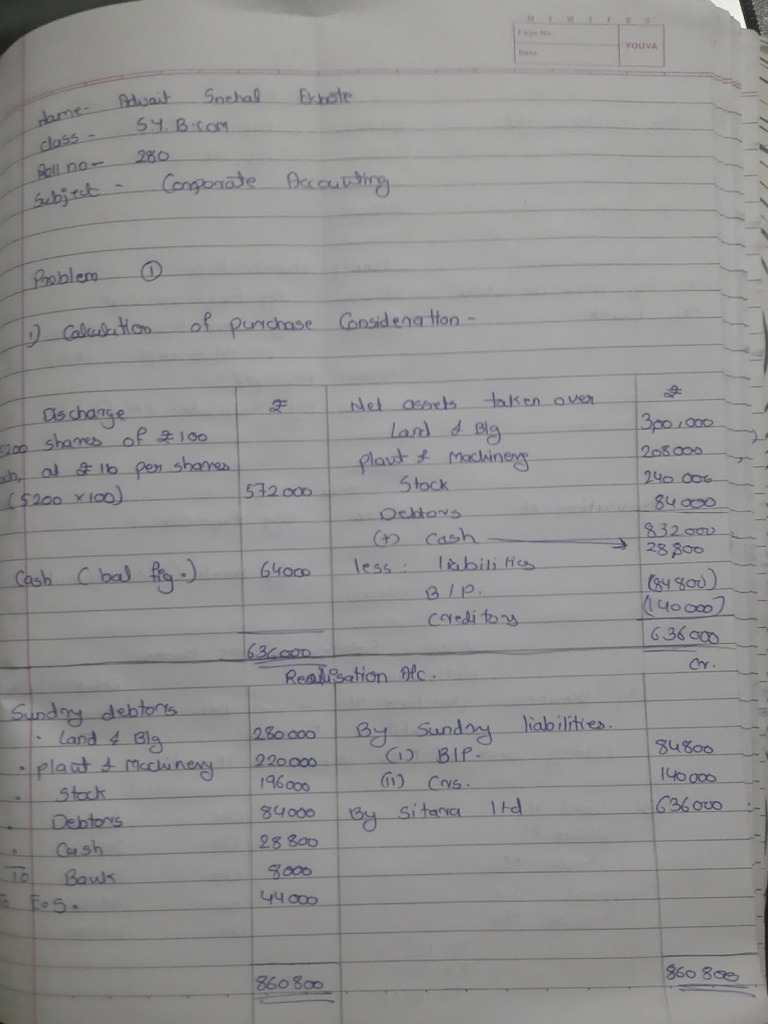 M T W T F S S
Page No.
Date
YOUVA
Name- Adwait Snehal
Class - S.Y. B.com
Roll no- 280
Subject - Corporate Accounting
Problem ①
1) Calculation of purchase Consideration -
Discharge ₹ Net assets taken over ₹
5200 shares of ₹100 Land & Blg 300,000
at ₹ 10 per shares plant & Machinery 208000
(5200 x 100) 572000 Stock 240 000
Debtors 84000
832000
(+) Cash 28,800
Cash (bal fig.) 64000 less: liabilities
B/P. (84800)
Creditors (140000)
636000 636000
Realisation A/c. Cr.
Sundry debtors
· Land & Blg 280000 By Sundry liabilities.
· plant & Machinery 220000 (i) B/P. 84800
· Stock 196000 (ii) Crs. 140000
· Debtors 84000 By Sitara ltd 636000
· Cash 28800
To Bank 8000
E.O.S. 44000
860800 860800